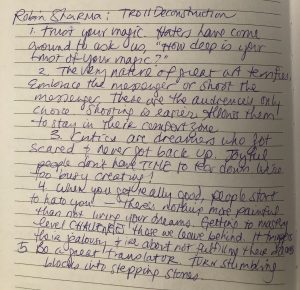 Robin Sharma: Troll Deconstruction
1. Trust your magic. Haters have come
around to ask us, "How deep is your
trust of your magic?"
2. The very nature of great art terrifies.
Embrace the messenger or shoot the
messenger. These are the audience's only
choice. Shooting is easier. Allows them
to stay in their comfort zone.
3. Critics are dreamers who got
scared & never got back up. Joyful
people don't have TIME to tear down. We're
too busy creating!
4. When you get really good, people start
to hate you — there's nothing more painful
than not living your dreams. Getting to mastery
level CHALLENGES those we leave behind. It triggers
their jealousy & about not fulfilling their
5. Be a great translator. TURN stumbling
blocks into stepping stones.